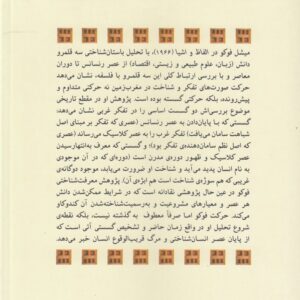 میشل فوکو در الفاظ و اشیا (۱۹۶۶)، با تحلیل باستان‌شناختی سه قلمرو
دانش (زبان، علوم طبیعی و زیستی، اقتصاد) از عصر رنسانس تا دوران
معاصر و با بررسی ارتباط کلی این سه قلمرو با فلسفه، نشان می‌دهد
حرکت صورت‌های تفکر و شناخت در مغرب‌زمین نه حرکتی متداوم و
پیش‌رونده، بلکه حرکتی گسسته بوده است. پژوهش او در مقطع تاریخی
موضوع بررسی‌اش دو گسست اساسی را در تفکر غربی نشان می‌دهد،
گسستی که با پایان‌دادن به عصر رنسانس (عصری که تفکر بر مبنای اصل
شباهت سامان می‌یافت) تفکر غرب را به عصر کلاسیک می‌رساند (عصری
که اصل نظم سامان‌دهنده‌ی تفکر بود)؛ و گسستی که معرف به‌انتهارسیدن
عصر کلاسیک و ظهور دوره‌ی مدرن است (دوره‌ای که در آن موجودی
به نام انسان پدید می‌آید و شناخت، او را ضرورت می‌یابد، موجودی دوگانه‌ی
غریبی که هم سوژه‌ی شناخت است هم ابژه‌ی آن). پژوهش معرفت‌شناختی
فوکو در عین حال پژوهشی نقادانه است که در شرایط ممکن‌شدن دانش
هر عصر و معیارهای مشروعیت و به‌رسمیت‌شناخته‌شدن آن کندوکاو
می‌کند. حرکت فوکو اما صرفاً معطوف به گذشته نیست، بلکه نقطه‌ی
شروع تحلیل او در واقع زمان حاضر و تشخیص گسستی آتی است که
از پایان عصر انسان‌شناختی و مرگ قریب‌الوقوع انسان خبر می‌دهد.